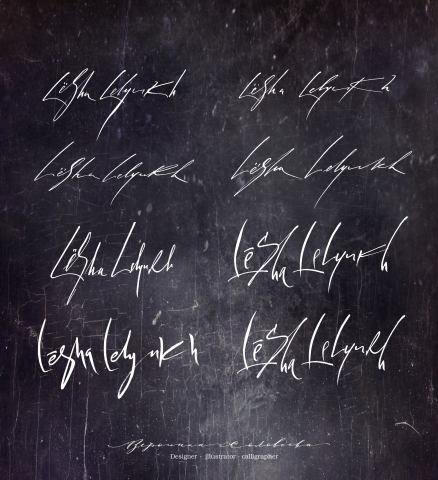 Lёsha Lelyukh Lёsha Lelyukh
Lёsha Lelyukh Lёsha Lelyukh
Lёsha Lelyukh Lёsha Lelyukh
Lёsha Lelyukh Lёsha Lelyukh
Вероника Соловьева
Designer - illustrator - calligrapher